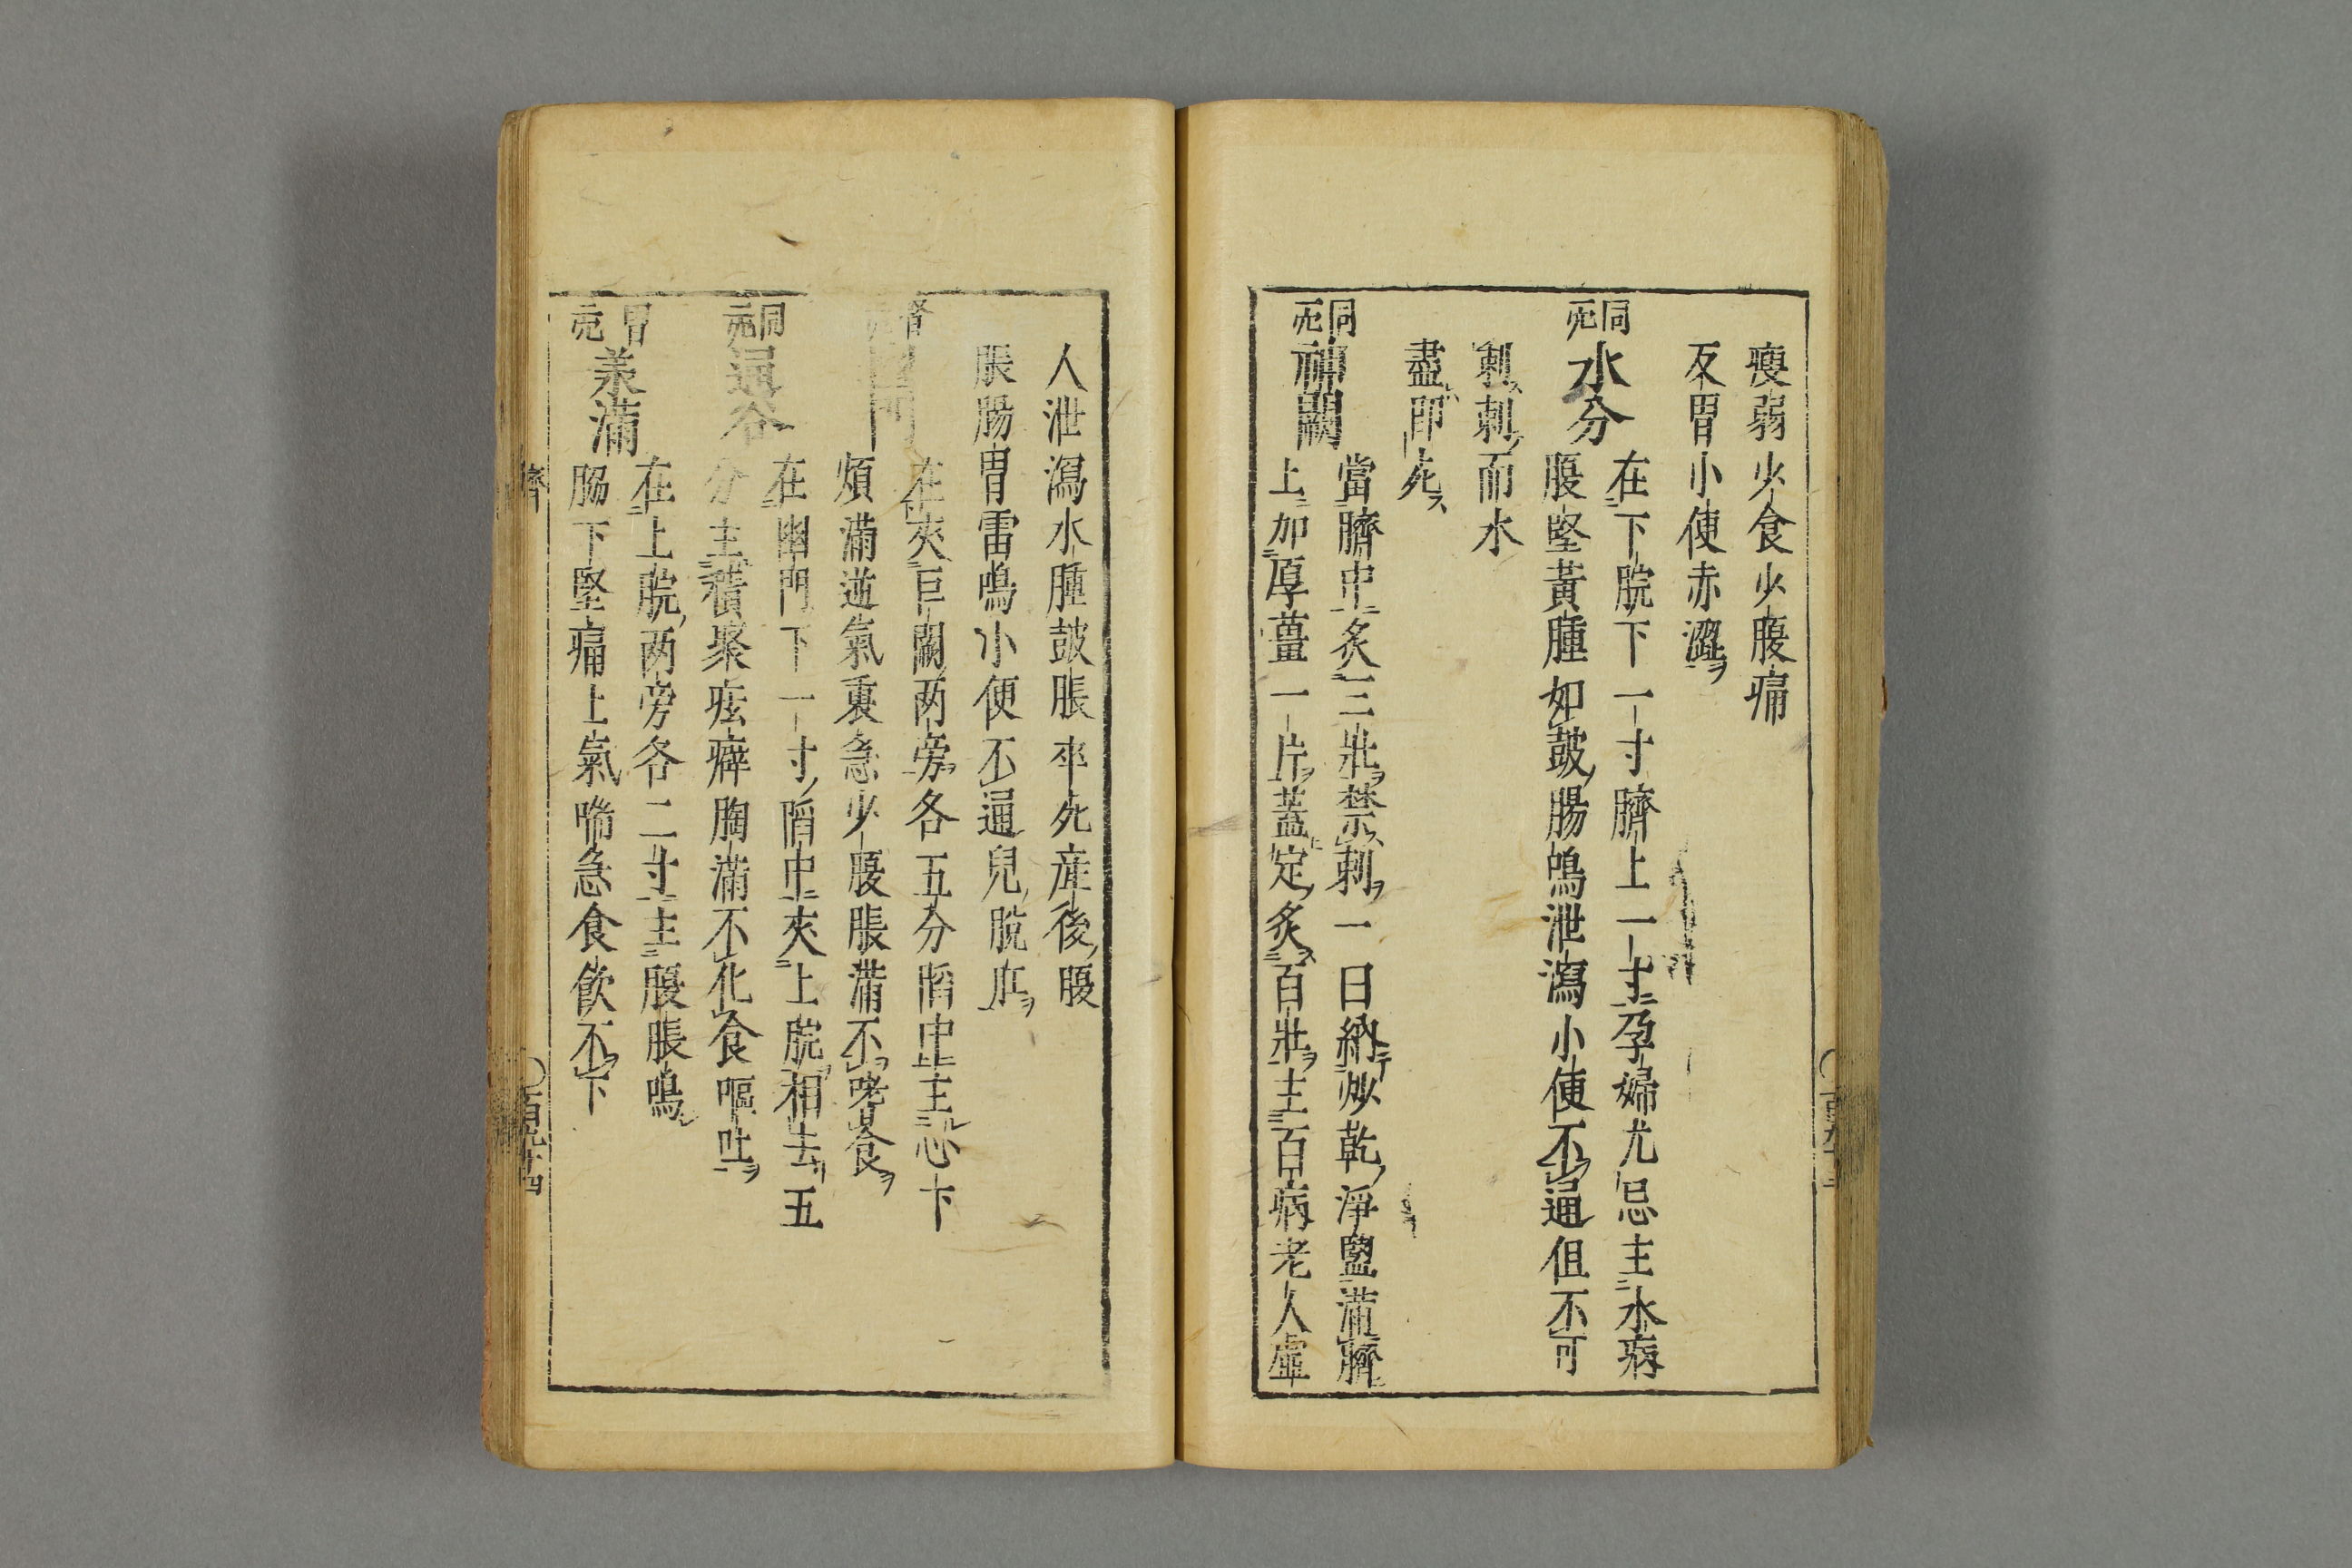 瘦弱少食少腹痛
反胃小便赤澀
同 水分 在下脘下一寸臍上一寸孕婦尤忌主水病
腹堅黃腫如皷腸鳴泄瀉小便不通但不可
刺刺而水
盡即死
同 神闕 當臍中炙三壯禁刺一日納炒乾淨鹽滿臍
上加厚薑一片蓋定炙百壯主百病老人虛
人泄瀉水腫皷脹卒死産後腹
脹腸胃雷鳴小便不通兒脫肛
腎 門 在夾巨闕兩旁各五分陷中主
煩滿逆氣裏急少腹脹滿不嗜食
同 通谷 在幽門下一寸陷中夾上脘相去五
分主積聚痃癖胸滿不化食嘔吐
胃 羕滿 在上脘两旁各二寸主腹脹鳴
脇下堅痛上氣喘急食飲不下
臍
百九十四